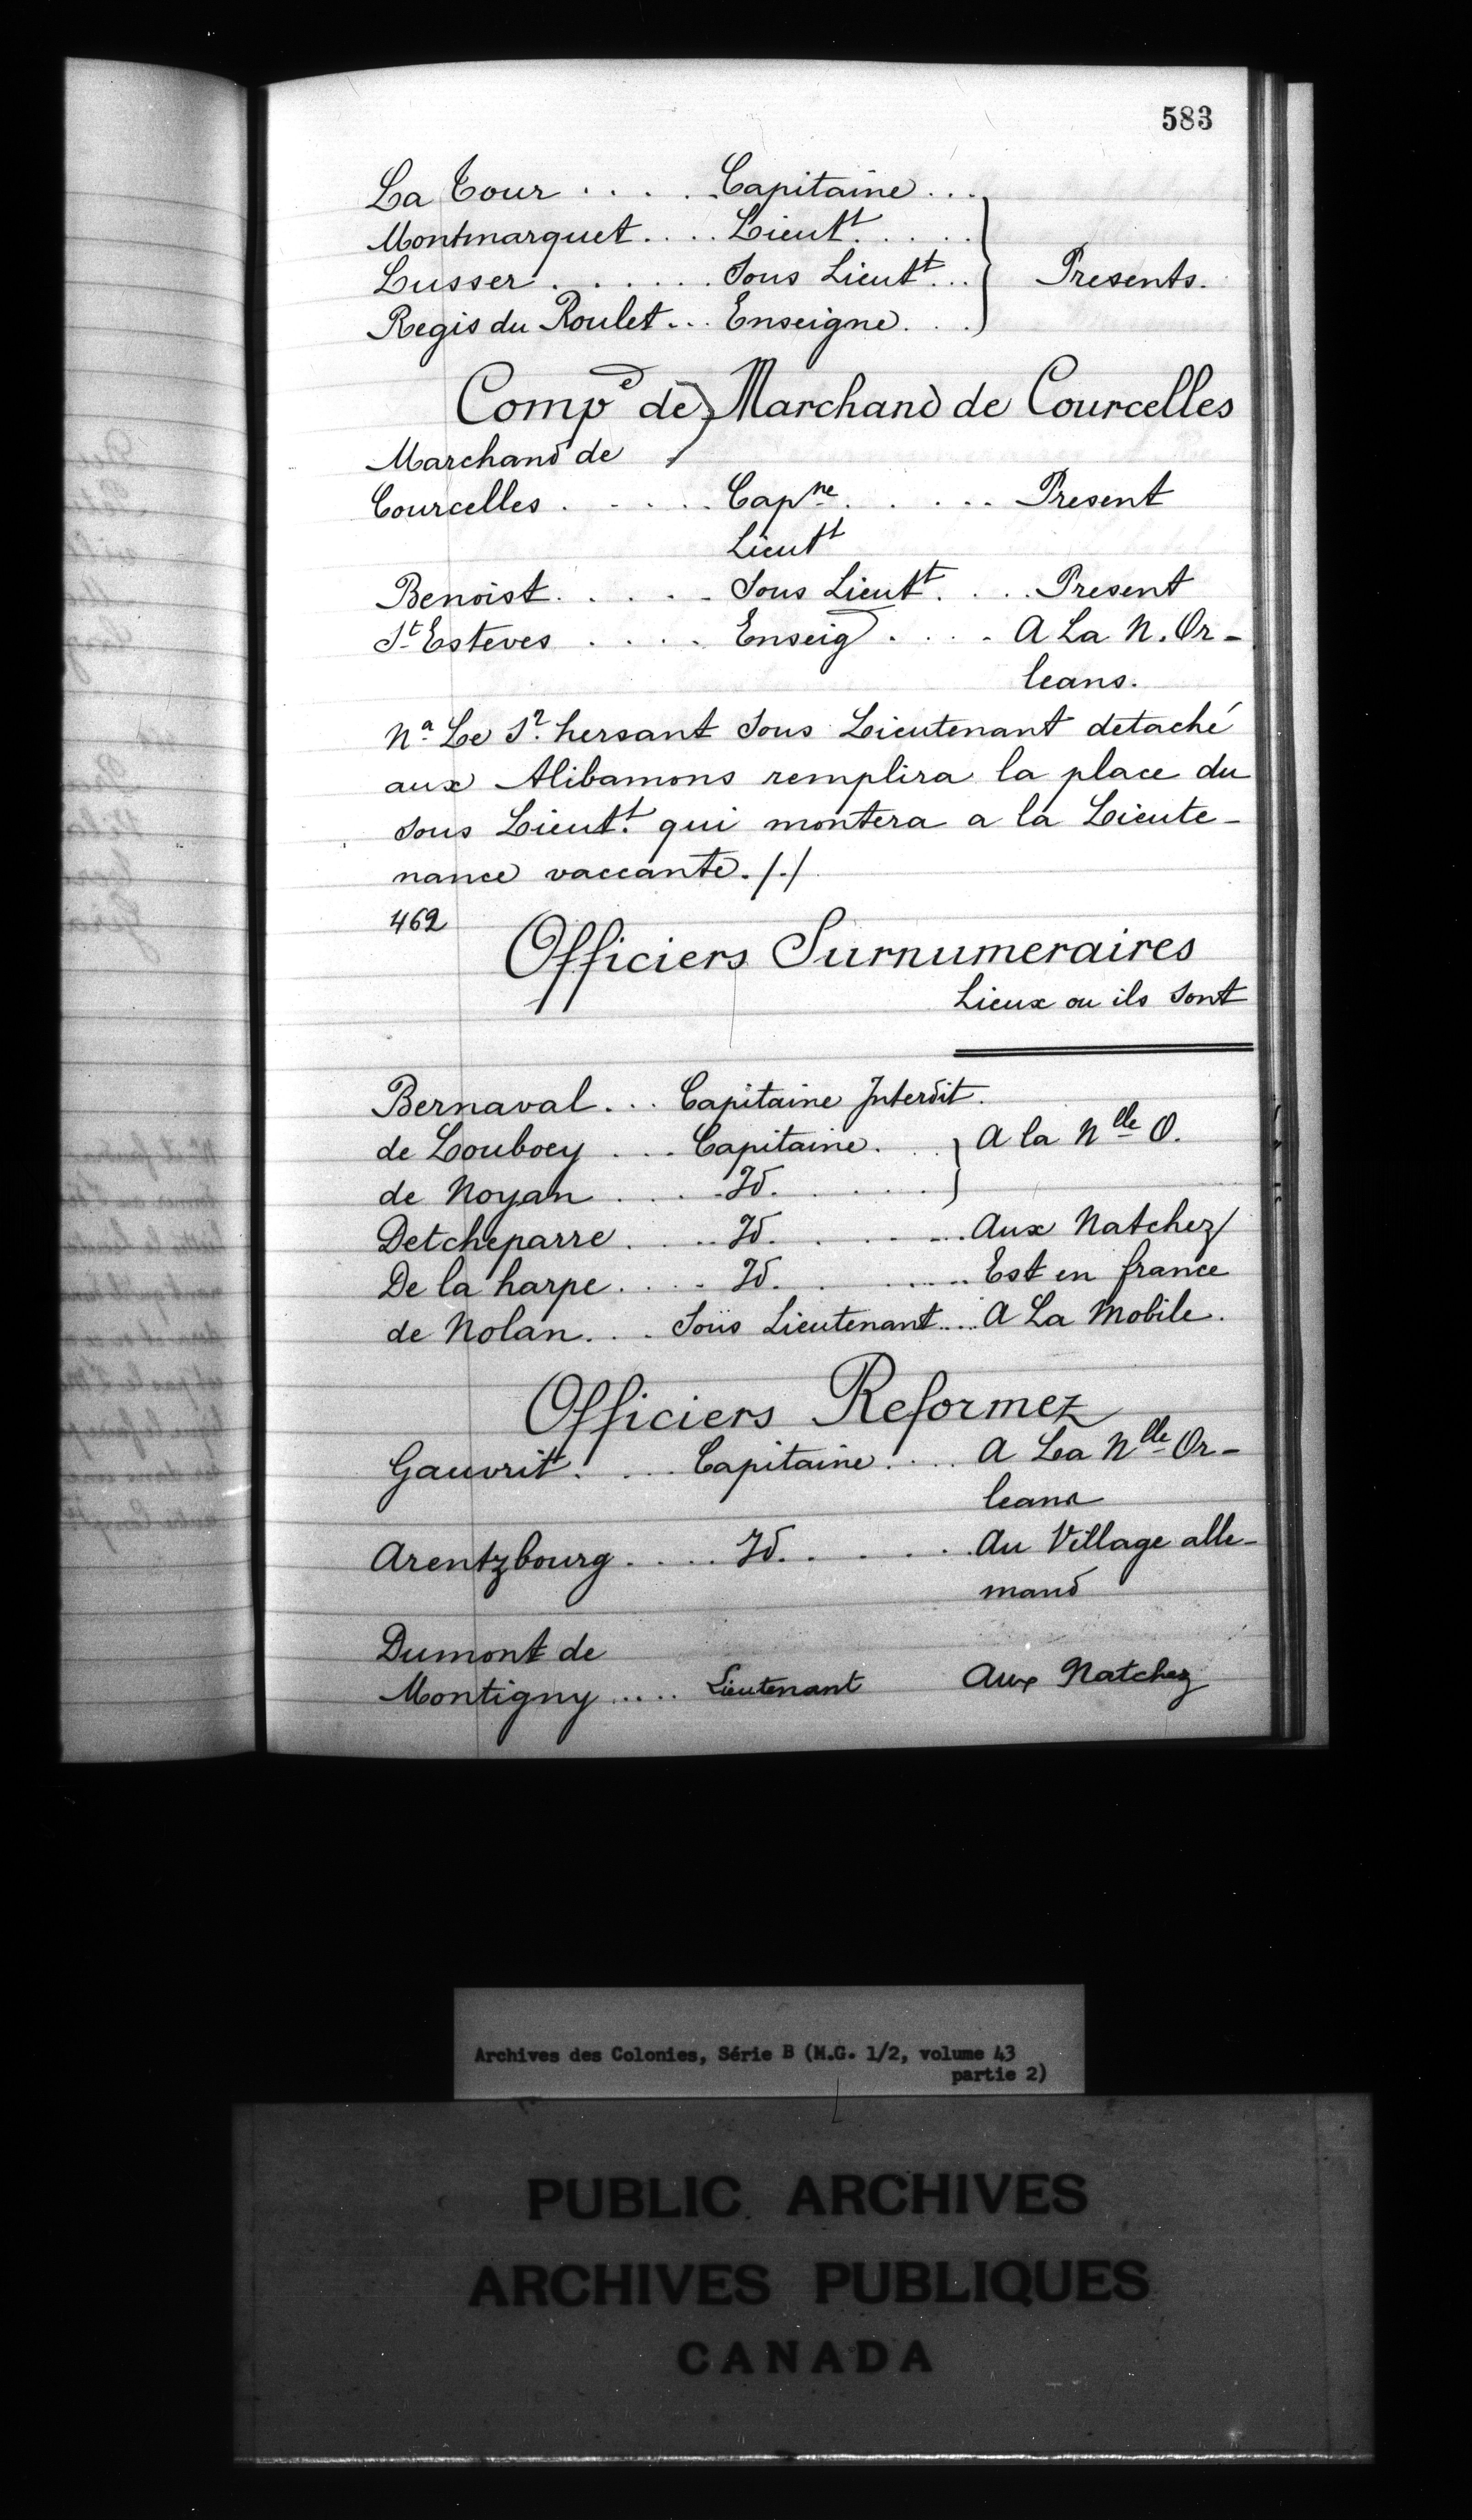 583
La Tour . . . . Capitaine . . .
Montmarquet . . . . Lieutt . . . . .
Lusser . . . . . . . Sous Lieutt . . . } Presents.
Regis du Roulet . . . Enseigne . . .
Compe de Marchand de Courcelles
Marchand de
Courcelles . . . . . Capne . . . . . Present
Lieutt
Benoist . . . . . Sous Lieutt . . . . Present
St Esteves . . . . Enseig . . . . A La N. Or-
leans.
Na Le Sr. hersant Sous Lieutenant detaché
aux Alibamons remplira la place du
Sous Lieutt. qui montera a la Lieute-
nance vaccante. /./
462
Officiers Surnumeraires
Lieux ou ils Sont
Bernaval . . . Capitaine Interdit.
de Louboey . . . Capitaine. . . } A la Nlle O.
de Noyan . . . . Id. . . . . .
Detcheparre . . . . Id. . . . . . Aux Natchez
De la harpe . . . . Id. . . . . . Est en france
de Nolan . . . Soüs Lieutenant . . . A La Mobile.
Officiers Reformez
Gauvrit . . . . Capitaine . . . . A La Nlle Or-
leans
Arentzbourg . . . . Id. . . . . . Au Village alle-
mand
Dumont de
Montigny . . . . . Lieutenant Aux Natchez
Archives des Colonies, Série B (M.G. 1/2, volume 43
partie 2)
PUBLIC ARCHIVES
ARCHIVES PUBLIQUES
CANADA